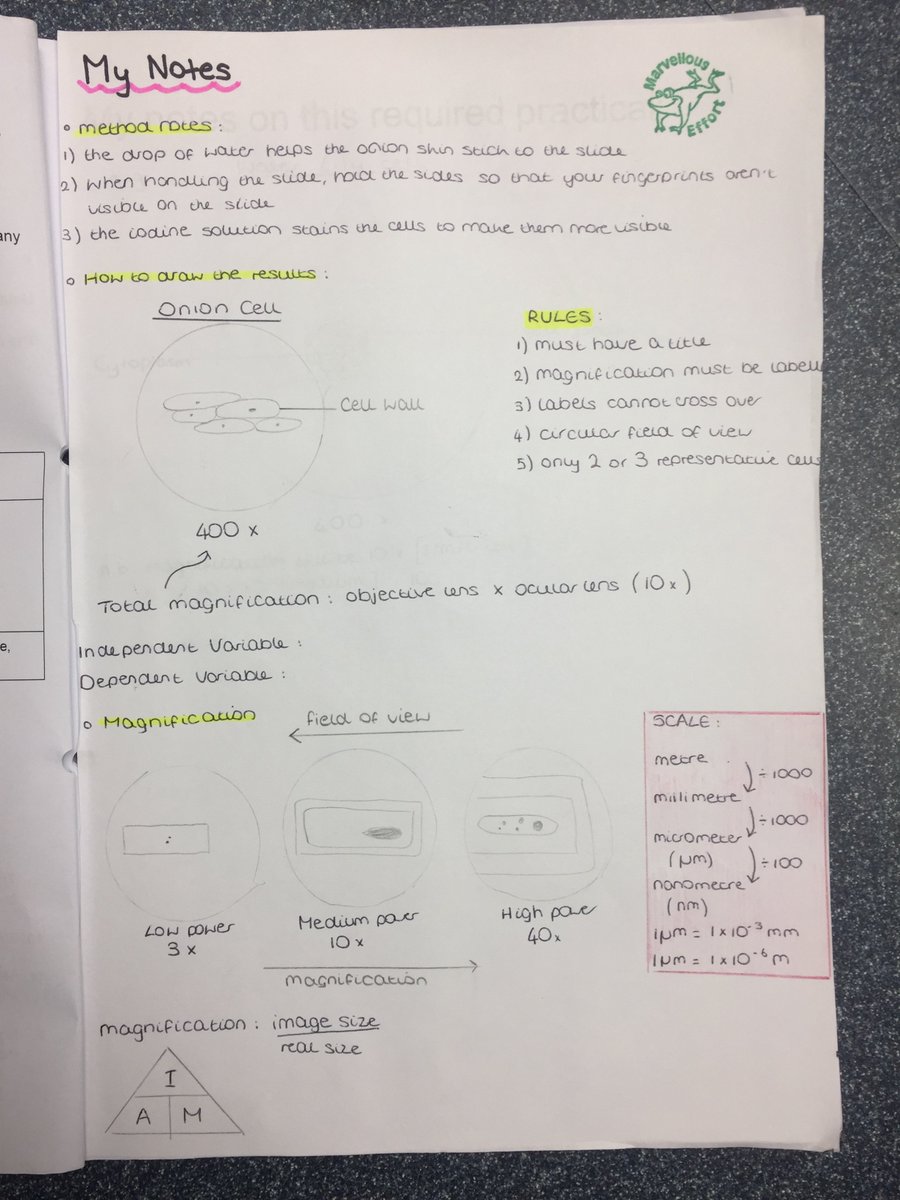 any
e,
My Notes
Marvellous Effort
My notes on this required practical
method notes:
1) the drop of water helps the onion skin stick to the slide
2) when handling the slide, hold the sides so that your fingerprints aren't
visible on the slide
3) the iodine solution stains the cells to make them more visible
How to draw the results:
Onion Cell
cell wall
400 x
RULES:
1) must have a title
2) magnification must be labell
3) labels cannot cross over
4) circular field of view
5) only 2 or 3 representative cells
Total magnification: objective lens x ocular lens (10x)
Independent Variable:
Dependent Variable:
Magnification
field of view
Low power
3x
Medium power
10x
High power
40x
magnification
SCALE:
metre
÷1000
millimetre
÷1000
micrometer
(μm)
÷100
nanometre
(nm)
1μm = 1x10⁻³ mm
1μm = 1x10⁻⁶ m
magnification: image size
real size
I
A M